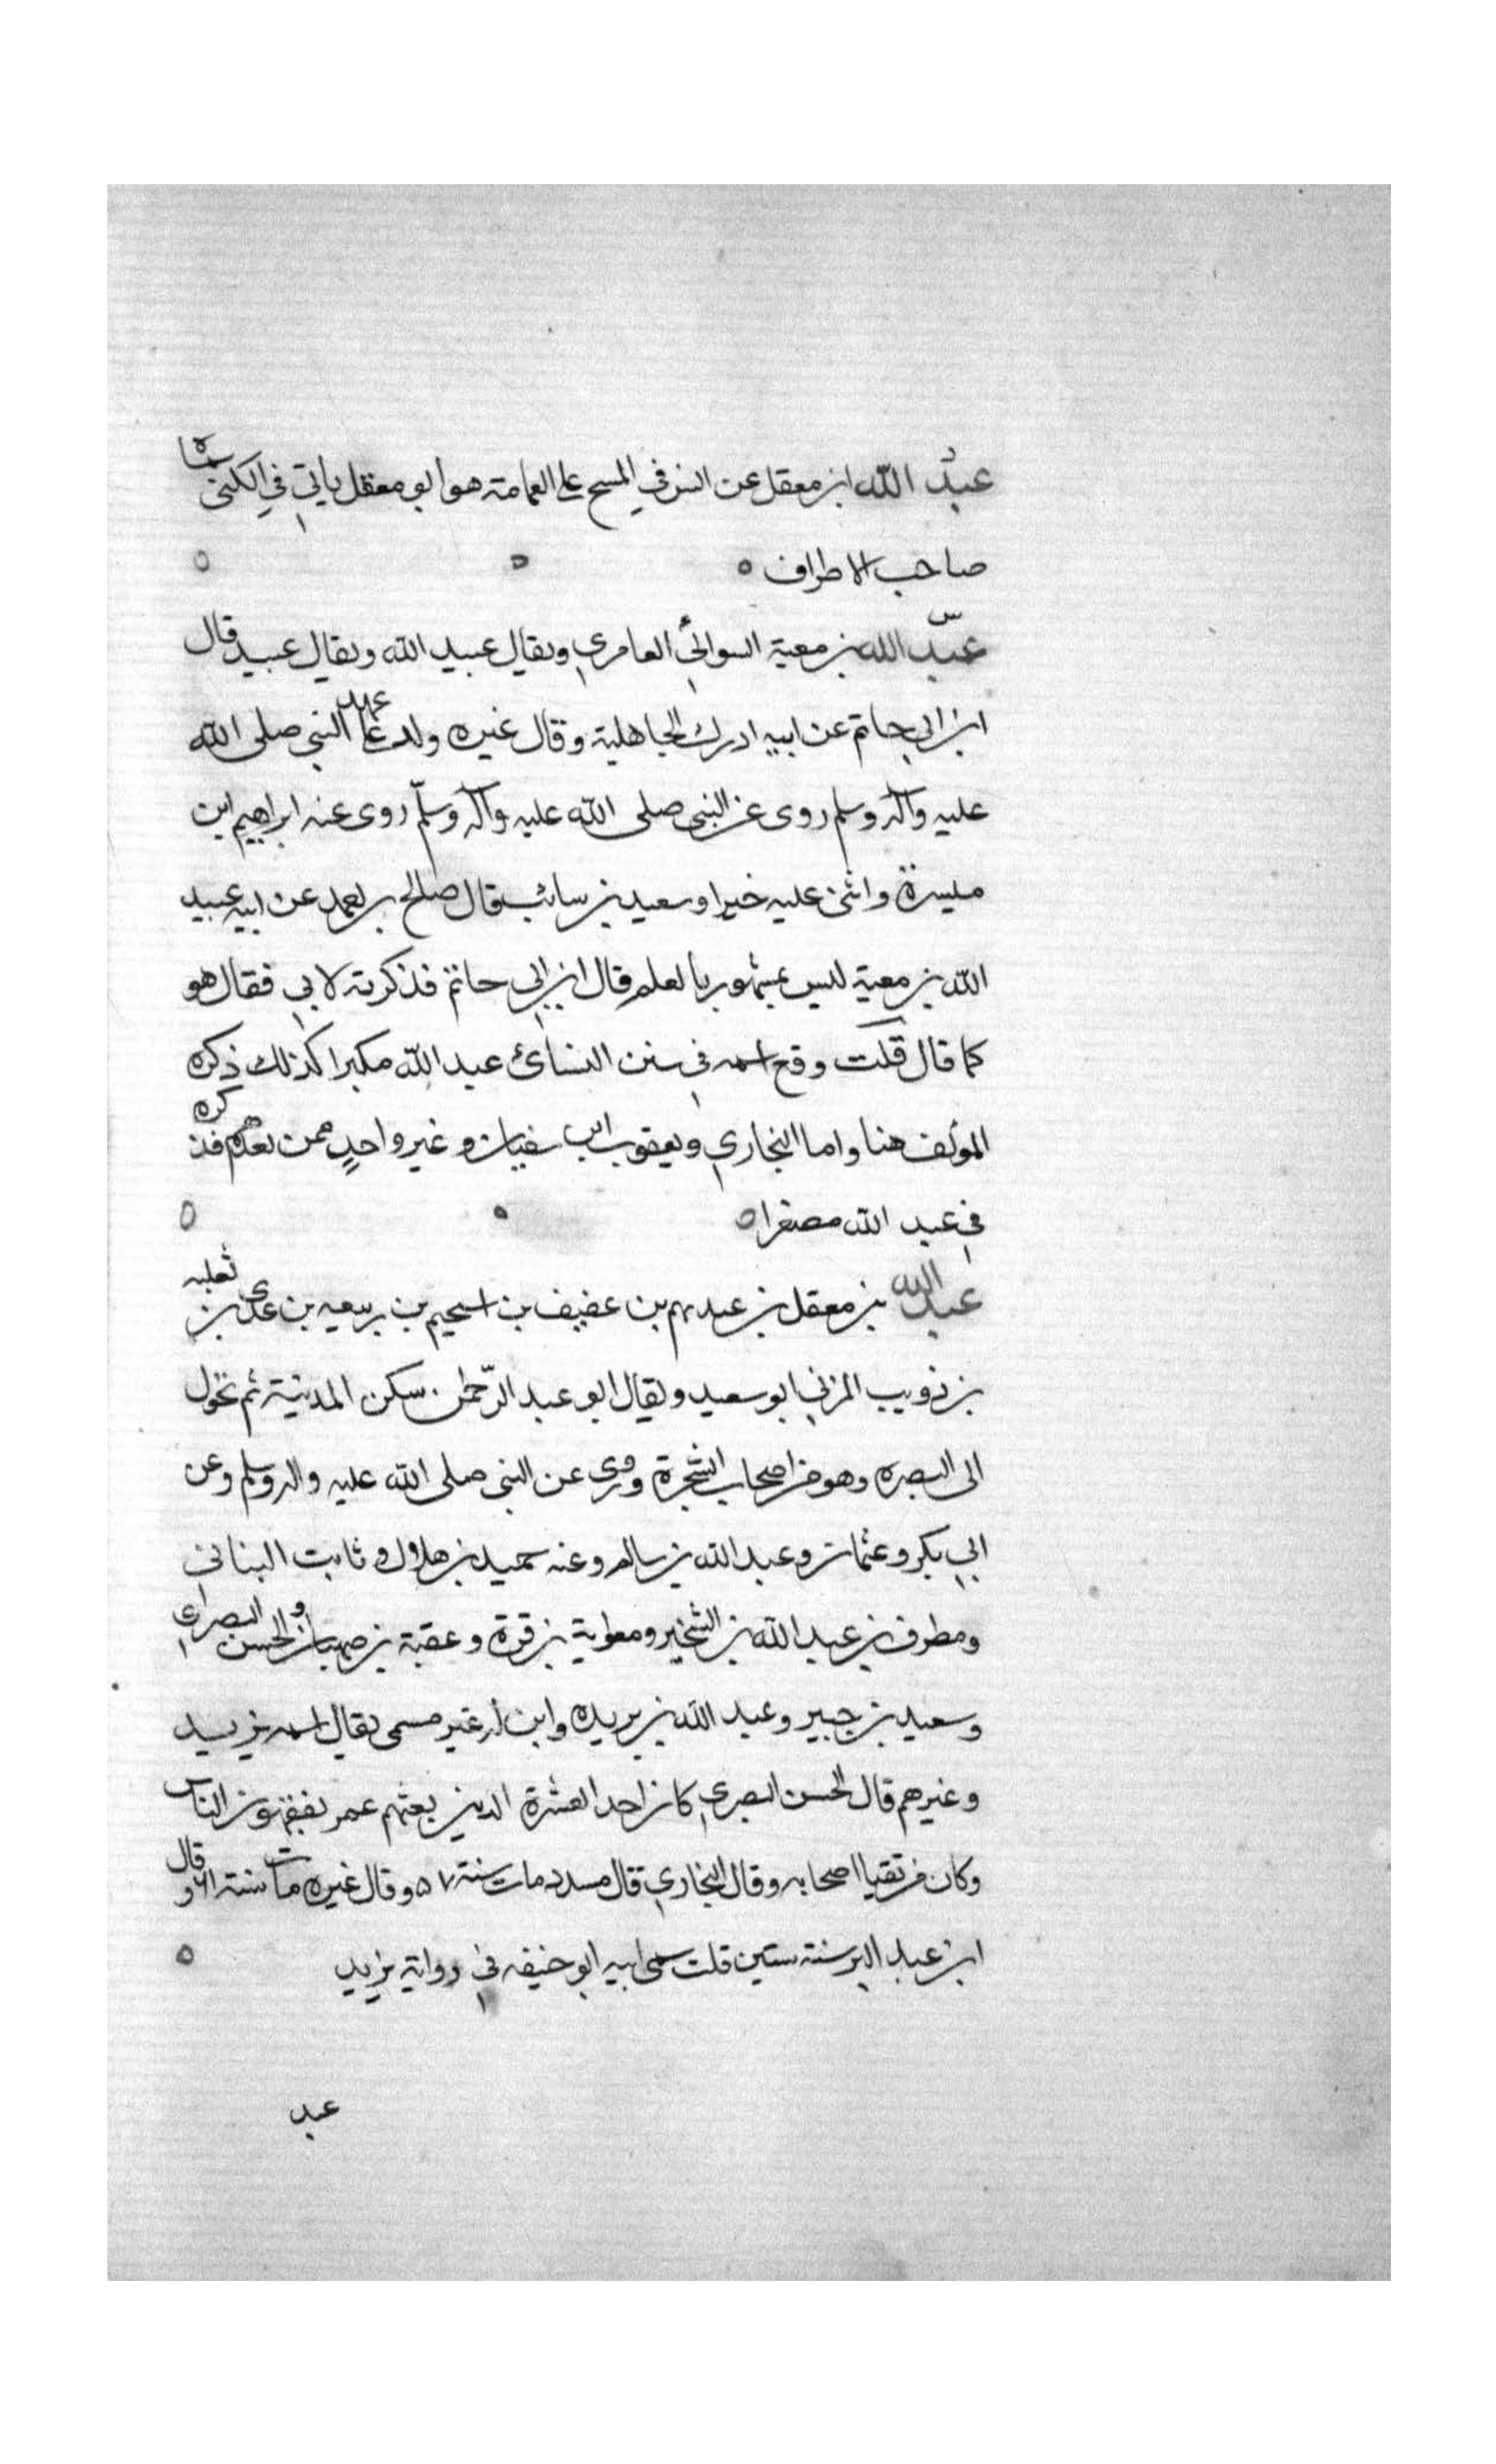 عبد الله ابن معقل عن انس في المسح على العمامة هو ابو معقل ياتي في الكنى سماه
صاحب الاطراف ه
س
عبد الله بن معية السوائي العامري ويقال عبيد الله ويقال عبيد قال
ابن ابي حاتم عن ابيه ادرك الجاهلية وقال غيره ولد على عهد النبي صلى الله
عليه وآله وسلم روى عن النبي صلى الله عليه وآله وسلم روى عنه ابراهيم ابن
ميسرة واثنى عليه خيرا وسعيد بن سائب قال صالح بن احمد عن ابيه عبيد
الله بن معية ليس بمشهور بالعلم قال ابن ابي حاتم فذكرته لابي فقال هو
كما قال قلت وقع اسمه في سنن النسائ عبد الله مكبرا كذلك ذكره
المؤلف هنا واما البخاري ويعقوب ابن سفيان وغير واحد ممن بعدهم فذكره
في عبيد الله مصغرا ه
عبد الله بن معقل بن عبدنهم بن عفيف بن اسحيم بن ربيعه بن عدى بن ثعلبه
بن ذويب المزني ابو سعيد ويقال ابو عبد الرحمن سكن المدينة ثم تحول
الى البصره وهو من اصحاب الشجرة وروى عن النبي صلى الله عليه واله وسلم وعن
ابي بكر وعثمان وعبد الله بن سالم وعنه حميد بن هلال وثابت البناني
ومطرف بن عبد الله بن الشخير ومعاوية بن قرة وعقبة بن صهبان والحسن البصري
وسعيد بن جبير وعبد الله بن بريده وابن له غير مسمى يقال اسمه يزيد
وغيرهم قال الحسن البصري كان احد العشرة الذين بعثهم عمر يفقهون الناس
وكان من نقباا اصحابه وقال البخاري قال مسدد مات سنة ٥٧ وقال غيره مات سنة ٦١ وقال
ابن عبد البر سنة ستين قلت سمى ابيه ابو حنيفه في رواية يزيد
عبد